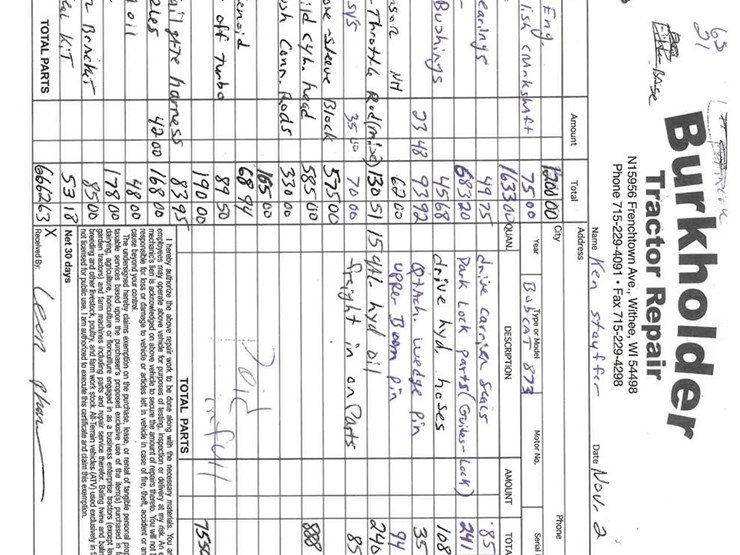 Burkholder
Tractor Repair
N15956 Frenchtown Ave., Withee, WI 54498
Phone 715-229-4091 • Fax 715-229-4298
Name Ken Stauffer Date Nov. 2
Address
City Phone
Year Type or Model Motor No. Serial
Bobcat 873
QUAN. DESCRIPTION AMOUNT TOTA
drive carrier seals 85
Park Lock parts (Guides-Lock) 241
drive hyd hoses 108
Q-Atach. wedge pin 35
upper Boom pin 94
15 gAL. hyd oil 240
freight in on Parts 85
888
Paid in full
TOTAL PARTS 7550
Amount Total
Eng. 1200 00
ish crankshaft 75 00
1633 00
earings 49 75
683 20
Bushings 45 68
23 48 93 92
sor NH 62 00
Throttle Rod (mix) 130 51
sys 35 00 70 00
e-sleeve Block 575 00
id cyl. head 585 00
sh Conn. Rods 330 00
165 00
enoid 68 94
off turbo 89 50
190 00
ail gate harness 83 95
les 42 00 168 00
oil 48 00
178 00
r Bracket 85 00
al Kit 53 18
TOTAL PARTS 6662 63
I hereby authorize the above repair work to be done along with the necessary materials. You ar
employees may operate above vehicle for purposes of testing, inspection or delivery at my risk. An e
mechanic's lien is acknowledged on above vehicle to secure the amount of repairs thereto. You will not
responsible for loss or damage to vehicle or articles left in vehicle in case of fire, theft, accident or an
cause beyond your control.
The undersigned hereby claims exemption on the purchase, lease, or rental of tangible personal prop
taxable services based upon the purchaser's proposed exclusive use of the item(s) purchased in t
dairying, agriculture, horticulture or floriculture engaged in as a business enterprise tractors (except la
garden tractors) and farm machines including parts and repair service therefor. Baling twine and balin
breeding and other livestock, poultry, and farm work stock. All-Terrain vehicles (ATV) used exclusively in f
not licensed for public use. I am authorized to execute this certificate and claim this exemption.
Net 30 days
X
Received By: